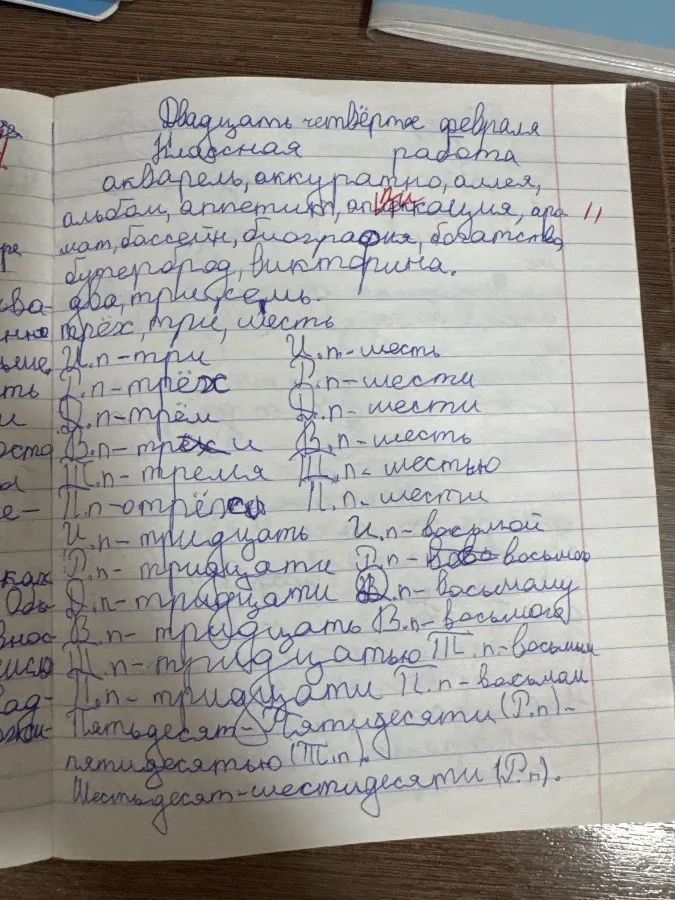 Двадцать четвёртое февраля
Классная работа
акварель, аккуратно, аллея,
альбом, аппетит, аппликация, аро
мат, бассейн, биография, богатство,
бутерброд, викторина.
два, три, семь.
трёх, три, шесть
И.п-три И.п-шесть
Р.п-трёх Р.п-шести
Д.п-трём Д.п-шести
В.п-три В.п-шесть
Т.п-тремя Т.п-шестью
П.п-о трёх П.п-шести
И.п-тридцать И.п-восьмой
Р.п-тридцати Р.п-восьмого
Д.п-тридцати Д.п-восьмаму
В.п-тридцать В.п-восьмого
Т.п-тридцатью Т.п-восьмым
П.п-тридцати П.п-восьмам
Пятьдесят-Пятидесяти (Р.п)-
пятидесятью (Т.п).
Шестьдесят-шестидесяти (Р.п).